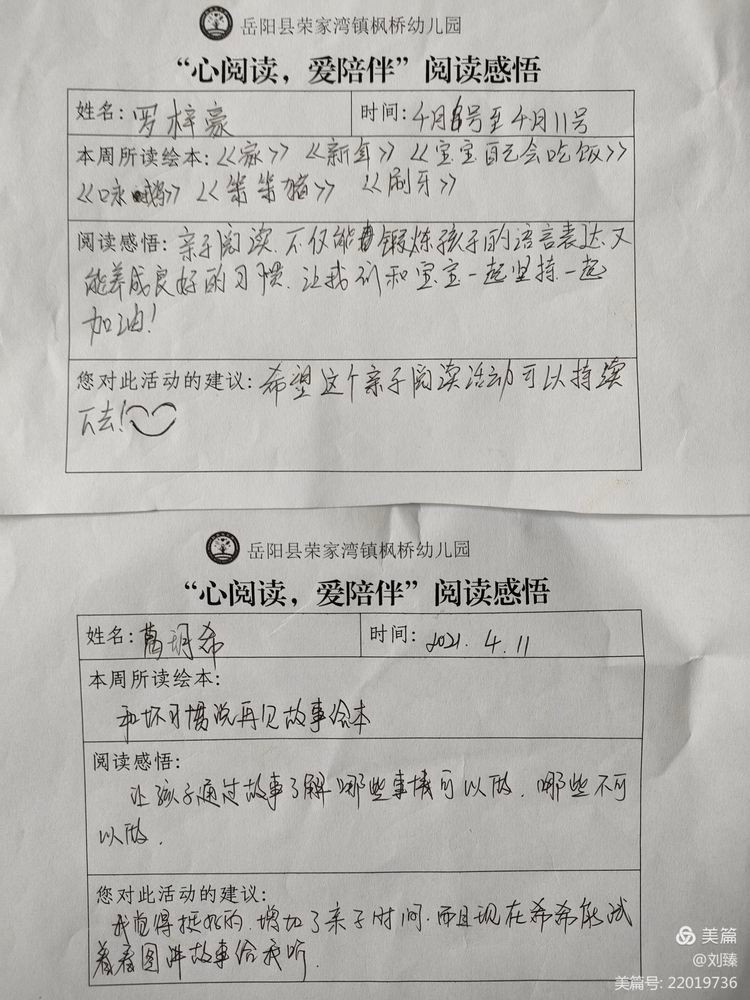 岳阳县荣家湾镇枫桥幼儿园
“心阅读，爱陪伴”阅读感悟
姓名：罗梓豪 时间：4月8号至4月11号
本周所读绘本：《家》《新年》《宝宝自己会吃饭》
《咏鹅》《笨笨猪》《刷牙》
阅读感悟：亲子阅读.不仅能锻炼孩子的语言表达.又
能养成良好的习惯.让我们和宝宝一起坚持一起
加油！
您对此活动的建议：希望这个亲子阅读活动可以持续
下去！
岳阳县荣家湾镇枫桥幼儿园
“心阅读，爱陪伴”阅读感悟
姓名：葛玥希 时间：2021.4.11
本周所读绘本：
和坏习惯说再见故事绘本
阅读感悟：
让孩子通过故事了解哪些事情可以做.哪些不可
以做.
您对此活动的建议：
我觉得挺好的.增加了亲子时间.而且现在希希能试
着看图讲故事给我听.
美篇
@刘臻
美篇号：22019736